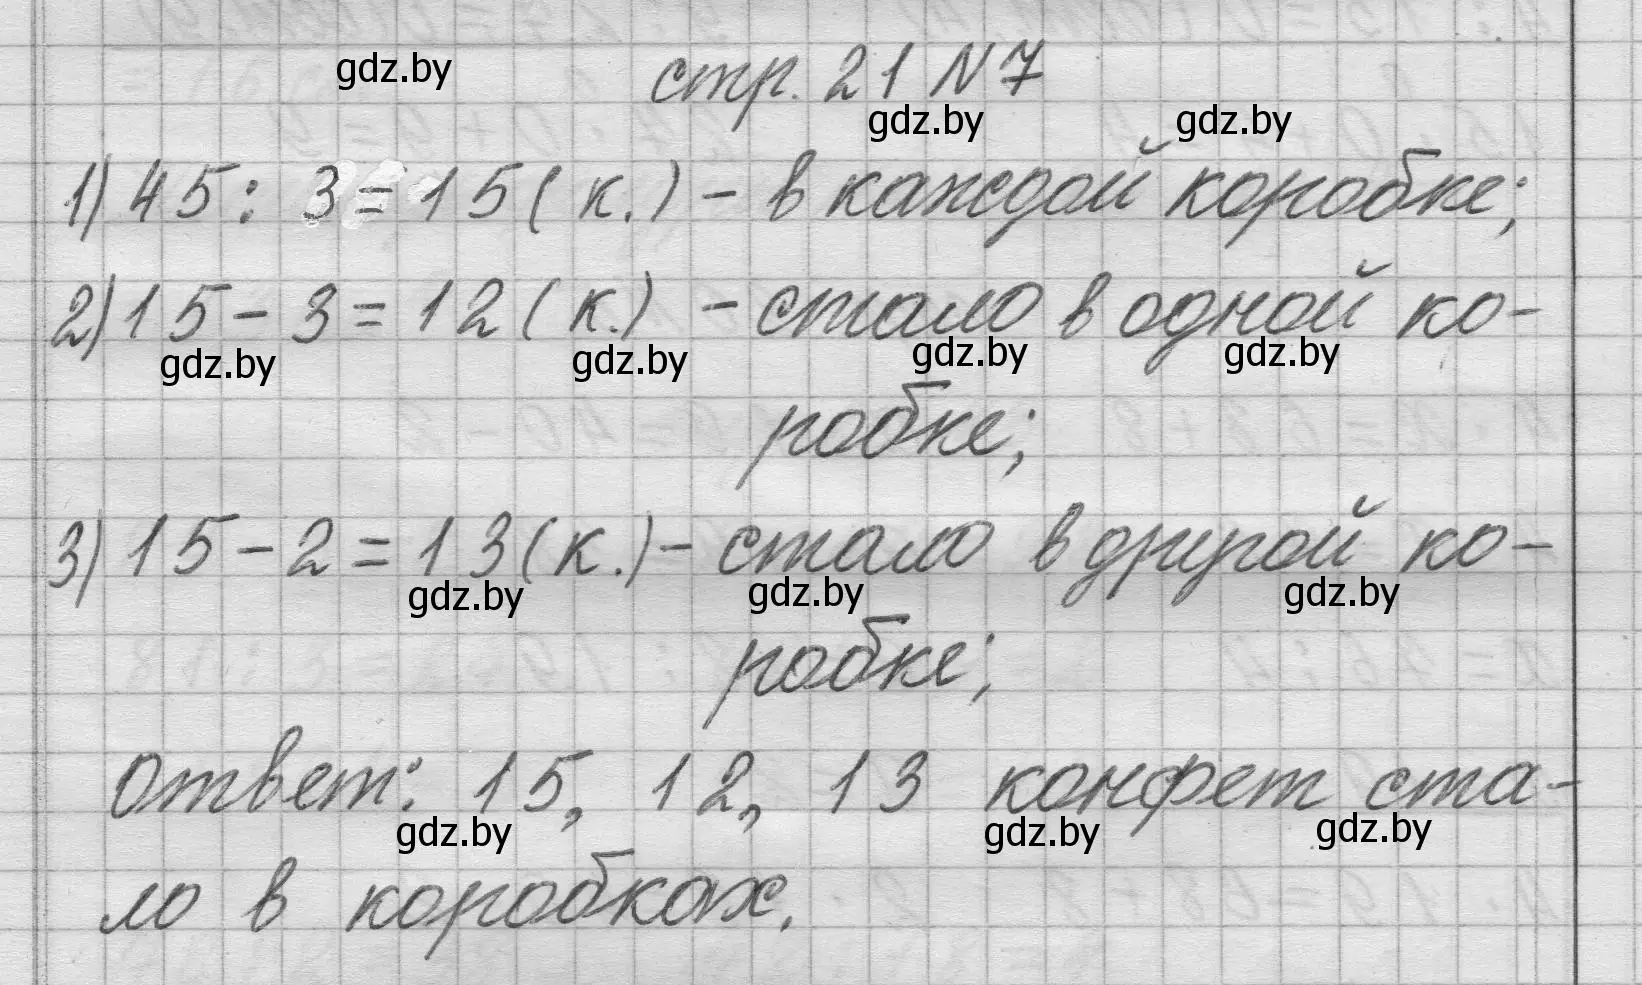 gdz.by стр. 21 N 7
gdz.by gdz.by
1) 45 : 3 = 15 ( к. ) - в каждой коробке;
2) 15 - 3 = 12 ( к. ) - стало в одной ко-
gdz.by gdz.by gdz.by gdz.by
робке;
3) 15 - 2 = 13 ( к. ) - стало в другой ко-
gdz.by gdz.by gdz.by
робке;
Ответ: 15, 12, 13 конфет ста-
gdz.by gdz.by gdz.by
ло в коробках.